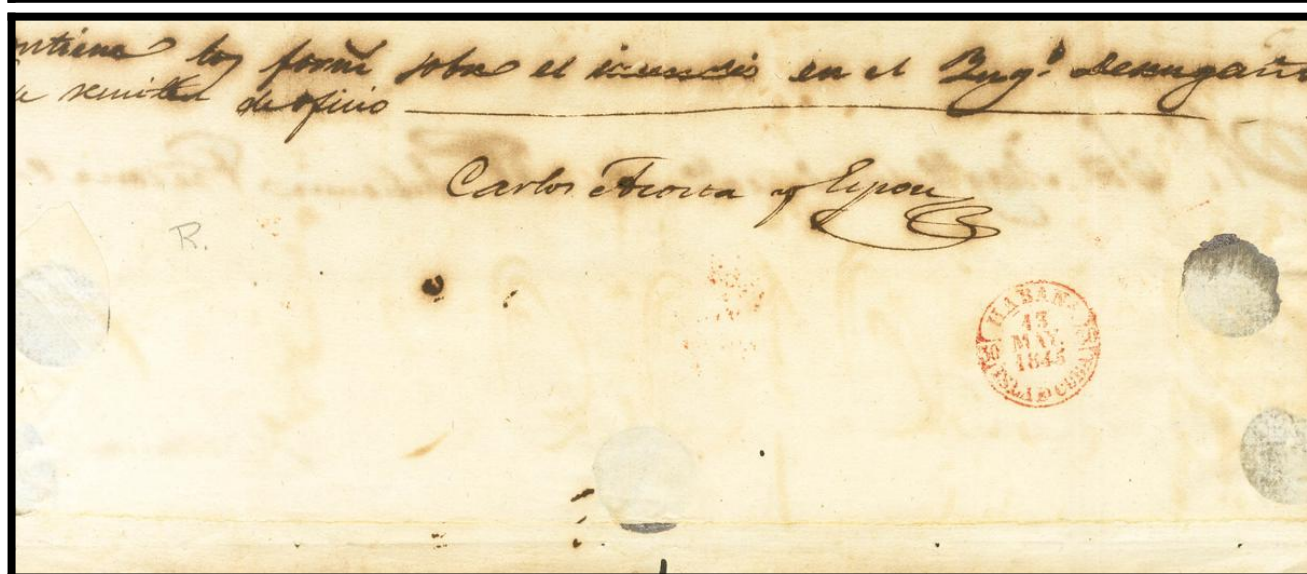 ntiene los form sobre el incendio en el Yng.º Desengaño
se remiten de oficio
Carlos Acosta y
R.
HABANA
13
MAY.
1845
30
ISLA DE CUBA